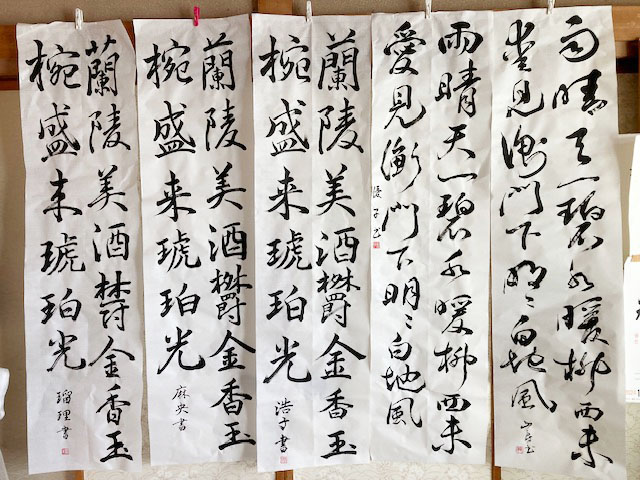 雨晴天一碧水暖柳西来
愛見衡門下明〻白地風
雨晴天一碧水暖柳西来
愛見衡門下明〻白地風
蘭陵美酒欝金香玉
椀盛来琥珀光
浩子書
蘭陵美酒欝金香玉
椀盛来琥珀光
麻央書
蘭陵美酒欝金香玉
椀盛来琥珀光
瑠理書